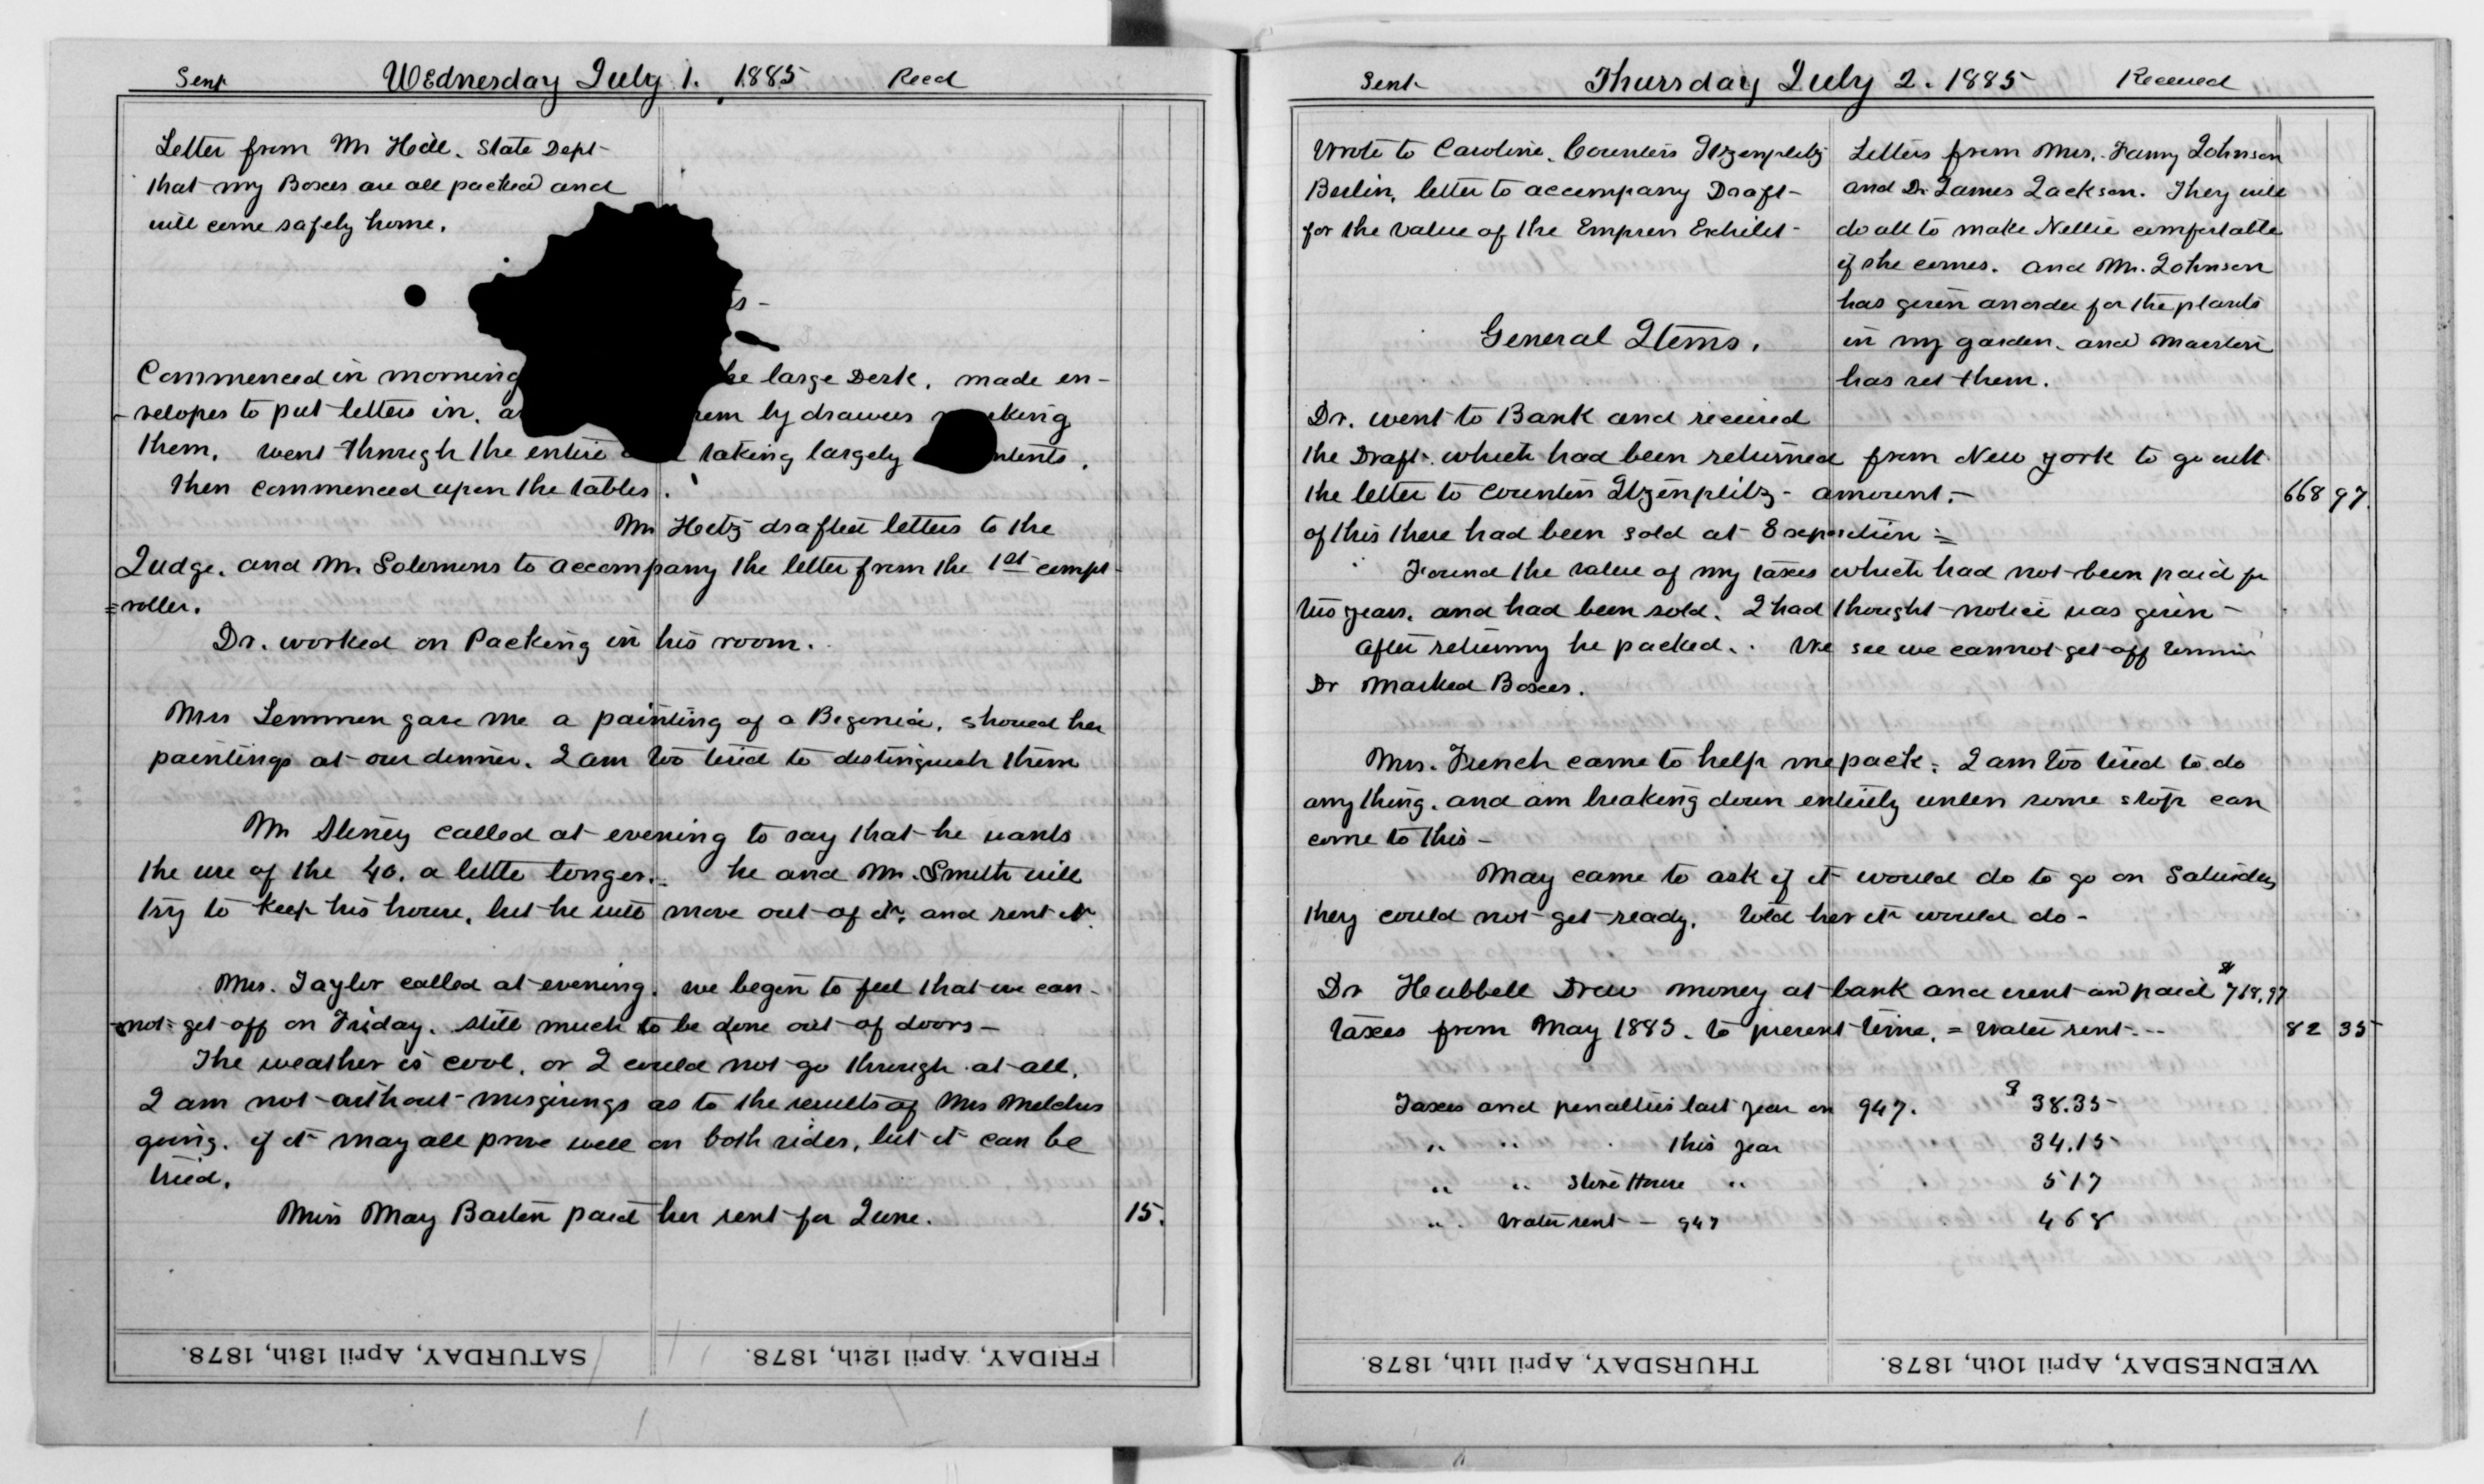 Sent Wednesday July 1. 1885 Recd
Letter from Mr Hill. State Dept-
that my Boxes are all packed and
will come safely home.
s-
Commenced in morning he large Desk. made en-
-velopes to put letters in. a em by drawers king
them. went through the entire taking largely ntents.
Then commenced upon the tables.
Mr Hetz drafted letters to the
Judge. and Mr. Solomons to accompany the letter from the 1st compt-
=roller.
Dr. worked on Packing in his room.
Mrs Lemmon gave me a painting of a Begonia. showed her
paintings at our dinner. I am too tired to distinguish them
Mr called at evening to say that he wants
the use of the 40. a little longer. he and Mr. Smith will
try to keep his house, but he will move out of it, and rent it.
Mrs. Taylor called at evening. we begin to feel that we can-
-not get off on Friday. still much to be done out of doors-
The weather is cool. or I could not go through at all.
I am not without misgivings as to the results of Mrs
going. if it may all prove well on both sides, but it can be
tried.
Miss May Barton paid her rent for June. 15.
SATURDAY, April 13th, 1878. FRIDAY, April 12th, 1878.
Sent Thursday July 2. 1885 Received
Wrote to Caroline. Countess Itzenplitz
Berlin, letter to accompany Draft-
for the value of the Empress Exhibit-
Letters from Mrs. Fanny Johnson
and Dr. James Jackson. They will
do all to make Nellie comfortable
if she comes. and Mr. Johnson
has given an order for the plants
in my garden. and
has set them.
General Items.
Dr. went to Bank and received
the Draft. which had been returned from New york to go with
the letter to Countess Itzenplitz - amount.- 668 97.
of this there had been sold at Exposition =
Found the value of my taxes which had not been paid for
two years. and had been sold. I had thought notice was given-
After returning he packed.. We see we cannot get off
Dr Marked Boxes.
Mrs. French came to help me pack. I am too tired to do
any thing. and am breaking down entirely unless some stop can
come to this-
May came to ask if it would do to go on Saturday
they could not get ready. Told her it would do-
Dr Hubbell Drew money at bank and went and paid $718.97
taxes from May 1883. to present time. = Water rent.-- 82 35
Taxes and penalties last year on 947. $ 38.35
" " this year 34.15
" " Stone House " 517
" Water rent - 947 468
THURSDAY, April 11th, 1878. WEDNESDAY, April 10th, 1878.